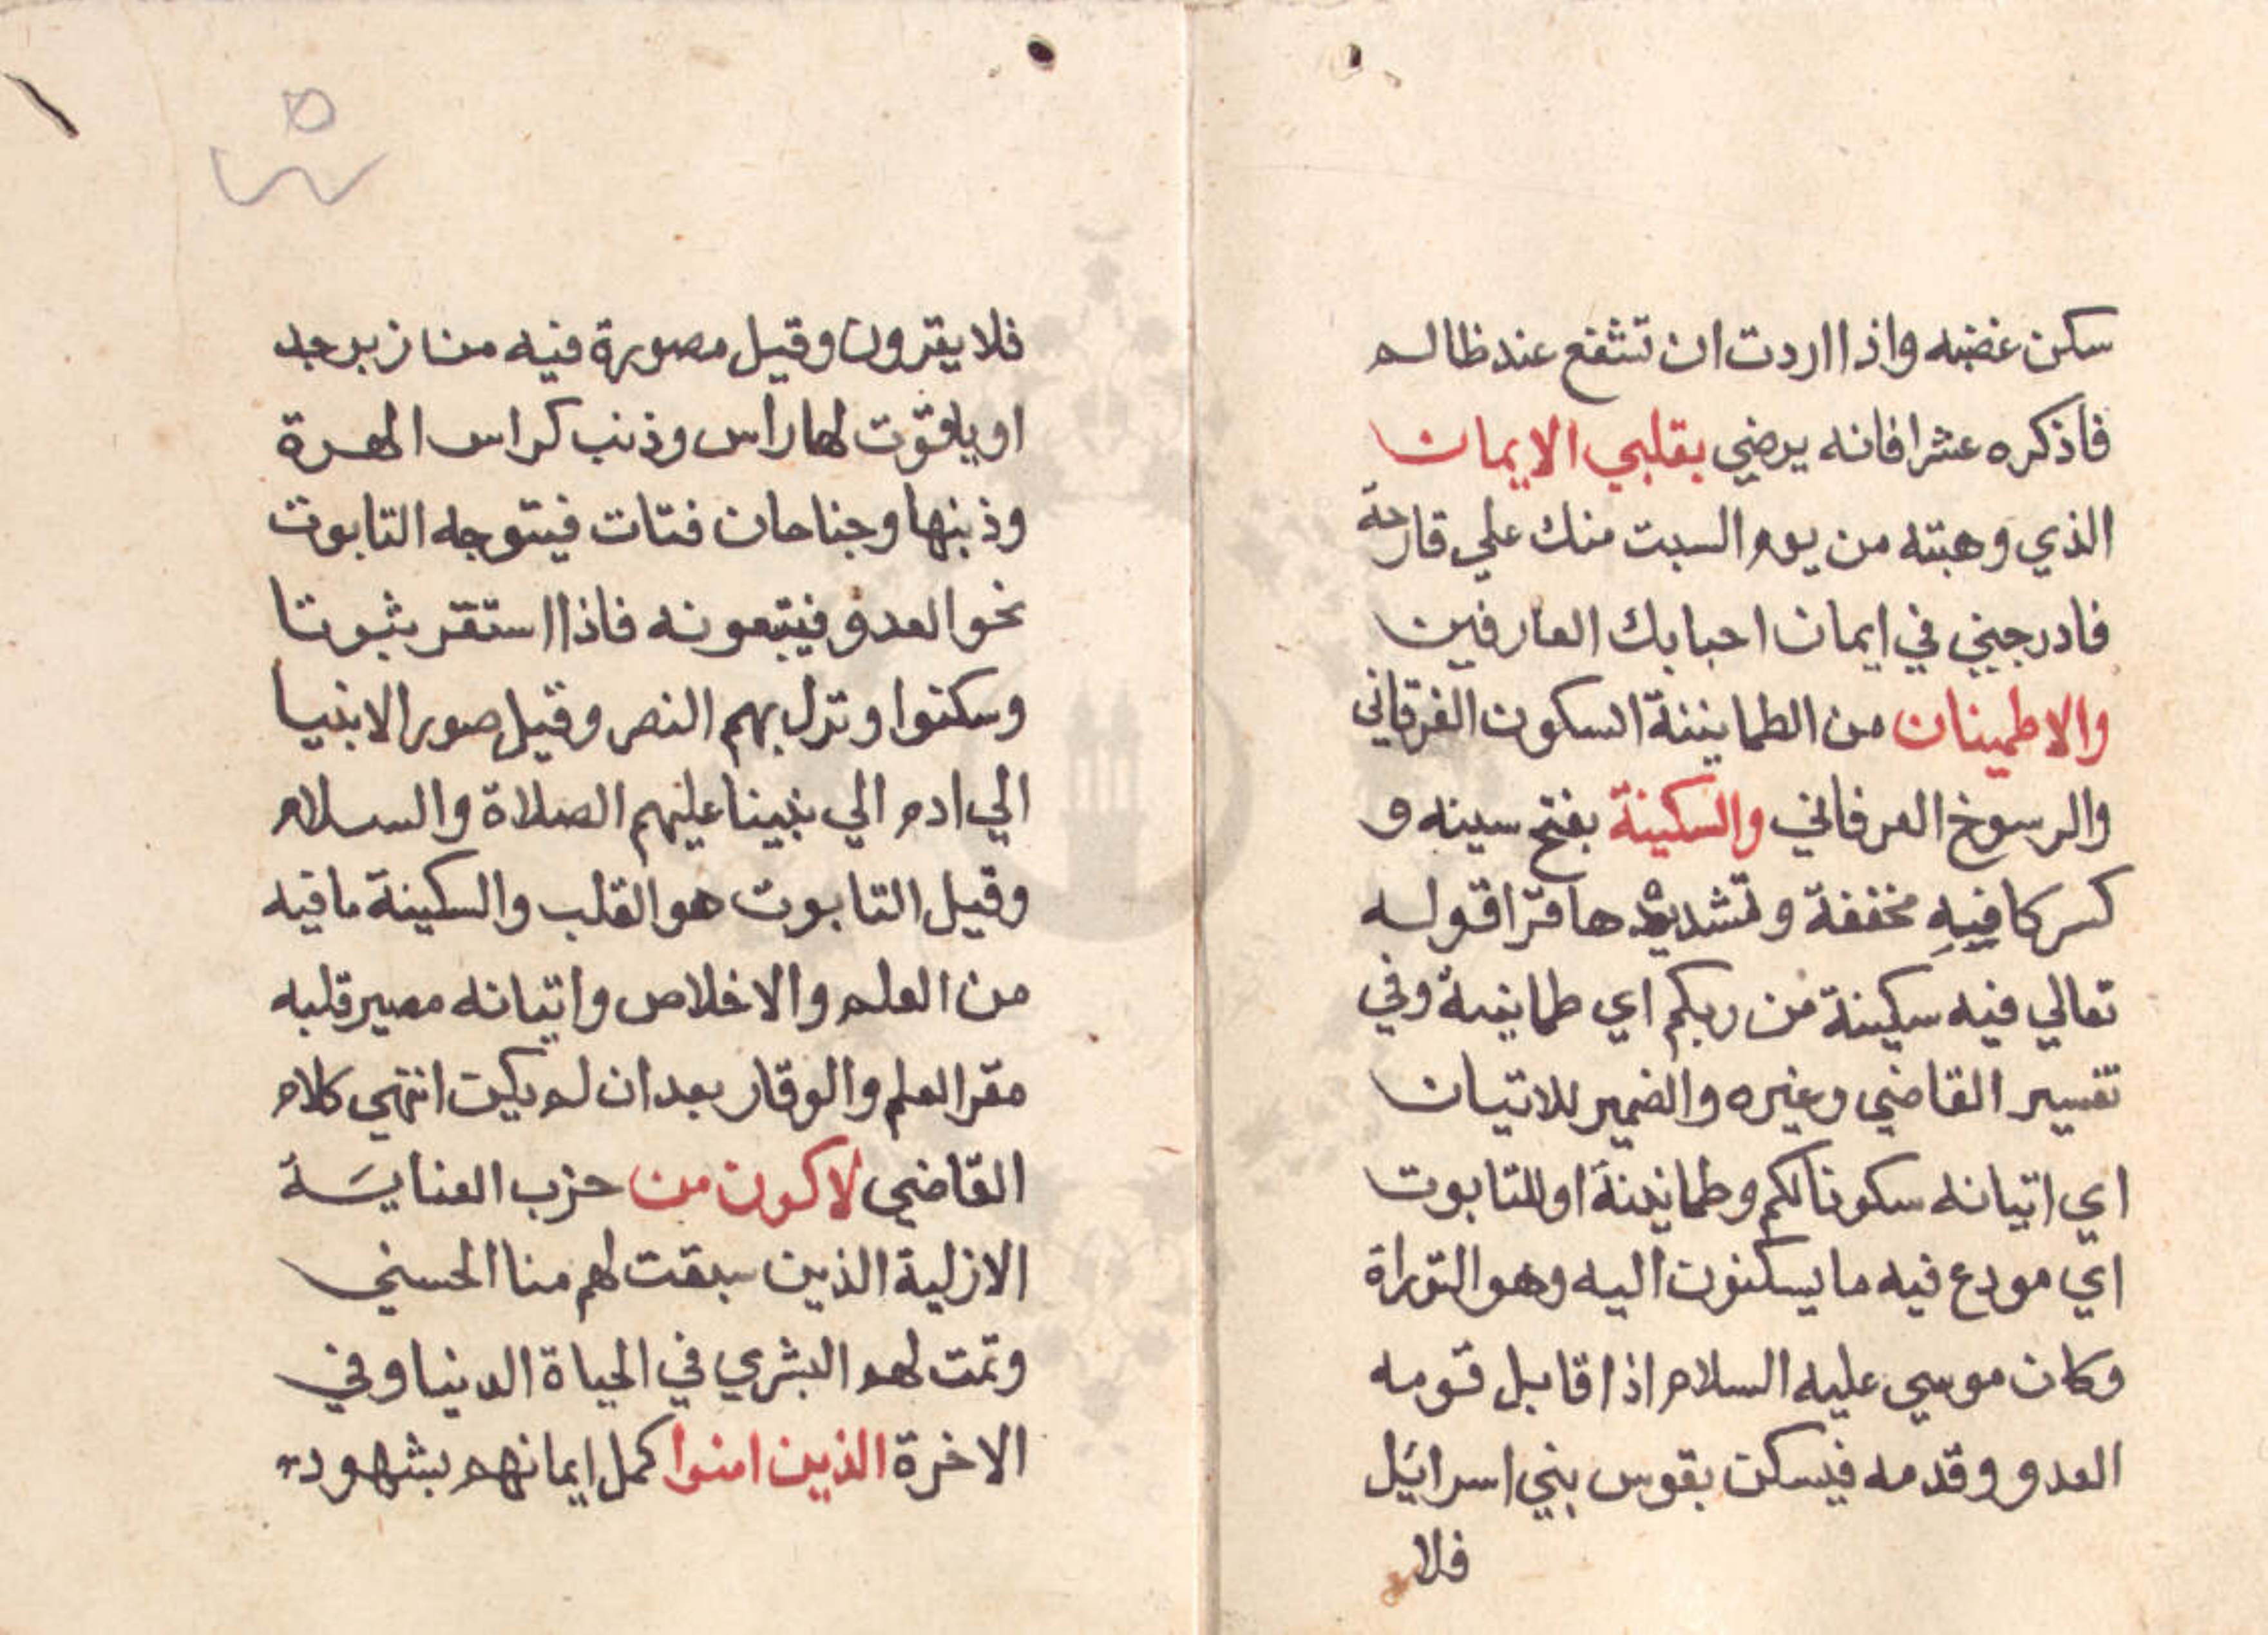 سكن غضبه واذا اردت ان تشفع عند ظالم
فاذكره عشرا فانه يرضي بقلبي الايمان
الذي وهبته من يوم الست منك علي قارحة
فادرجيني في ايمان احبابك العارفين
والاطمينان من الطمانينة السكون الفرقاني
والرسوخ العرفاني والسكينة بفتح سينه و
كسر كا فيه مخففة وتشديدها قرا قوله
تعالي فيه سكينة من ربكم اي طمانينة وفي
تفسير القاضي وغيره والضمير للاتيان
اي اتيانه سكونا لكم وطمانينة او للتابوت
اي مودع فيه ما يسكنون اليه وهو التوراة
وكان موسي عليه السلام اذا قابل قومه
العدو وقدمه فيسكن بقوس بني اسرايل
فلا
فلا يقرون وقيل مصورة فيه من زبرجد
او ياقوت لها راس وذنب كراس الهرة
وذنبها وجناحان فتات فيتوجه التابوت
نحو العدو فيتبعونه فاذا استقر ثبوتا
وسكنوا ونزل بهم النصر وقيل صور الانبيا
الي ادم الي نبينا عليهم الصلاة والسلام
وقيل التابوت هو القلب والسكينة ما فيه
من العلم والاخلاص واتيانه مصير قلبه
مقر العلم والوقار بعد ان لم يكن انتهي كلام
القاضي لاكون من حزب العناية
الازلية الذين سبقت لهم منا الحسني
وتمت لهم البشري في الحياة الدنيا وفي
الاخرة الذين امنوا كمل ايمانهم بشهود